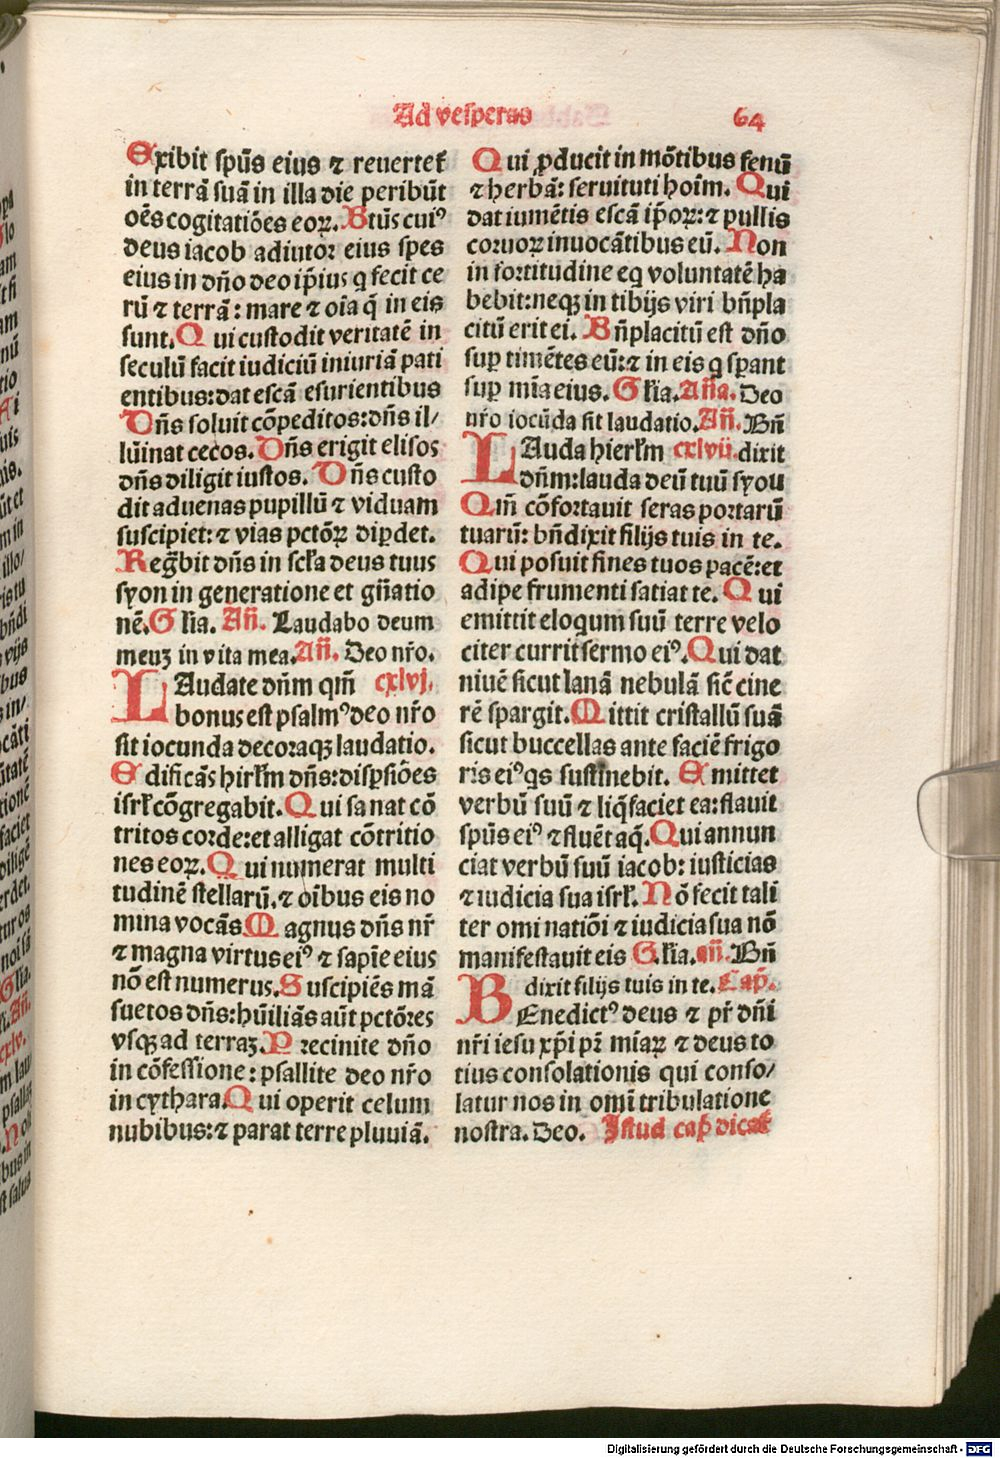 Ad vesperas 64
Exibit spūs eius ⁊ reuertet᷑
in terrā suā in illa die peribūt
oēs cogitatiōes eoꝝ. Btūs cuiꝰ
deus iacob adiutor eius spes
eius in dn̄o deo ip̄ius q fecit ce
rū ⁊ terrā: mare ⁊ oīa q̄ in eis
sunt. Qui custodit veritatē in
seculū facit iudiciū iniuriā pati
entibus: dat escā esurientibus
Dn̄s soluit cōpeditos: dn̄s il/
lūinat cecos. Dn̄s erigit elisos
dn̄s diligit iustos. Dn̄s custo
dit aduenas pupillū ⁊ viduam
suscipiet: ⁊ vias pctōꝝ diꝑdet.
Regn̄bit dn̄s in scl̄a deus tuus
syon in generatione et gn̄atio
nē. Gl̄ia. An̄. Laudabo deum
meuꝫ in vita mea. An̄. Deo nr̄o.
LAudate dn̄m qm̄ cxlvj.
bonus est psalmꝰ deo nr̄o
sit iocunda decoraqꝫ laudatio.
Edificās hirl̄m dn̄s: disꝑsiōes
isrl̄ cōgregabit. Qui sanat cō
tritos corde: et alligat cōtritio
nes eoꝝ. Qui numerat multi
tudinē stellarū. ⁊ oībus eis no
mina vocās. Magnus dn̄s nr̄
⁊ magna virtus eiꝰ ⁊ sapīe eius
nō est numerus. Suscipiēs mā
suetos dn̄s: hūiliās aūt pctōres
vsqꝫ ad terraꝫ. Precinite dn̄o
in cōfessione: psallite deo nr̄o
in cythara. Qui operit celum
nubibus: ⁊ parat terre pluuiā.
Qui ꝓducit in mōtibus fenū
⁊ herbā: seruituti hoīm. Qui
dat iumētis escā ip̄oꝝ: ⁊ pullis
coruoꝝ inuocātibus eū. Non
in fortitudine eq̄ voluntatē ha
bebit: neqꝫ in tibijs viri bn̄pla
citū erit ei. Bn̄placitū est dn̄o
suꝑ timētes eū: ⁊ in eis q sꝑant
suꝑ mīa eius. Gl̄ia. An̄a. Deo
nr̄o iocūda sit laudatio. An̄. Bn̄
LAuda hierl̄m cxlvij. dixit
dn̄m: lauda deū tuū syon
Qm̄ cōfortauit seras portarū
tuarū: bn̄dixit filijs tuis in te.
Qui posuit fines tuos pacē: et
adipe frumenti satiat te. Qui
emittit eloqum suū terre velo
citer currit sermo eiꝰ. Qui dat
niuē sicut lanā nebulā sic̄ cine
rē spargit. Mittit cristallū suā
sicut buccellas ante faciē frigo
ris eiꝰ qs sustinebit. Emittet
verbū suū ⁊ liq̄faciet ea: flauit
spūs eiꝰ ⁊ fluēt aq̄. Qui annun
ciat verbū suū iacob: iusticias
⁊ iudicia sua isrl̄. Nō fecit tali
ter omi natiōi ⁊ iudicia sua nō
manifestauit eis Gl̄ia. an̄. Bn̄
dixit filijs tuis in te. Cap̄.
BEnedictꝰ deus ⁊ pr̄ dn̄i
nr̄i iesu xp̄i pr̄ mīaꝝ ⁊ deus to
tius consolationis qui conso/
latur nos in omī tribulatione
nostra. Deo. Istud cap̄ dicat᷑
Digitalisierung gefördert durch die Deutsche Forschungsgemeinschaft - DFG